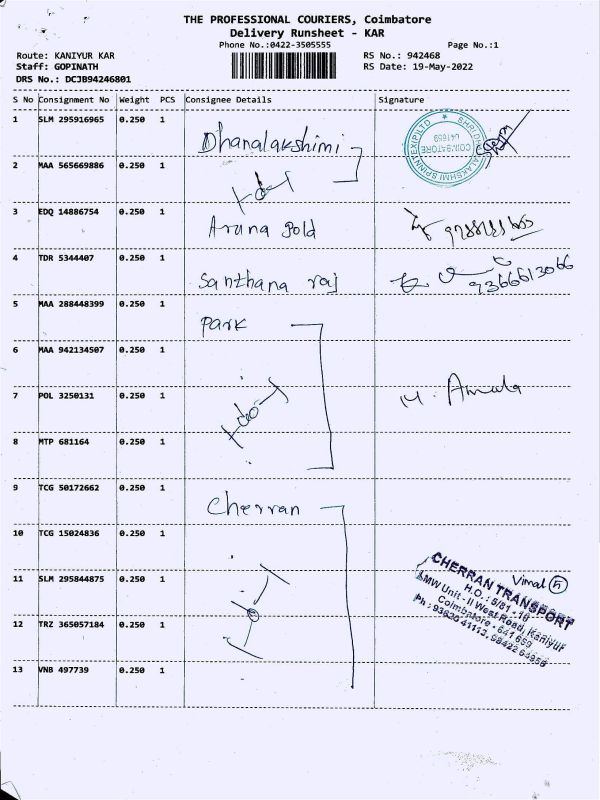 THE PROFESSIONAL COURIERS, Coimbatore
Delivery Runsheet - KAR
Phone No.:0422-3505555 Page No.:1
Route: KANIYUR KAR RS No.: 942468
Staff: GOPINATH RS Date: 19-May-2022
DRS No.: DCJB94246801
S No Consignment No Weight PCS Consignee Details Signature
1 SLM 295916965 0.250 1
Dhanalakshimi
COIMBATORE
641659
2 MAA 565669886 0.250 1
3 EDQ 14886754 0.250 1
Aruna gold
4 TDR 5344407 0.250 1
Santhana raj 9366613066
5 MAA 288448399 0.250 1
Park
6 MAA 942134507 0.250 1
7 POL 3250131 0.250 1
M. Amula
8 MTP 681164 0.250 1
9 TCG 50172662 0.250 1
Cherran
10 TCG 15024836 0.250 1
11 SLM 295844875 0.250 1
Vimal
CHERRAN TRANSPORT
H.O. : 5/81 - 16
LMW Unit - II West Road, Kaniyur
Coimbatore - 641 659
12 TRZ 365057184 0.250 1
13 VNB 497739 0.250 1